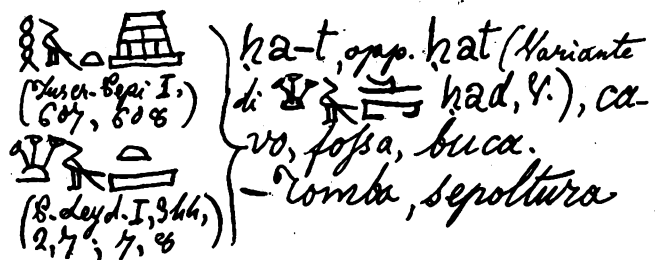 (Inscr. Pepi I,
607, 608)
(P. Leyd. I, 344,
2,7; 7,8)
ḥa-t, opp. ḥat (Variante
di ḥad, V.), ca-
vo, fossa, buca.
– Tomba, sepoltura